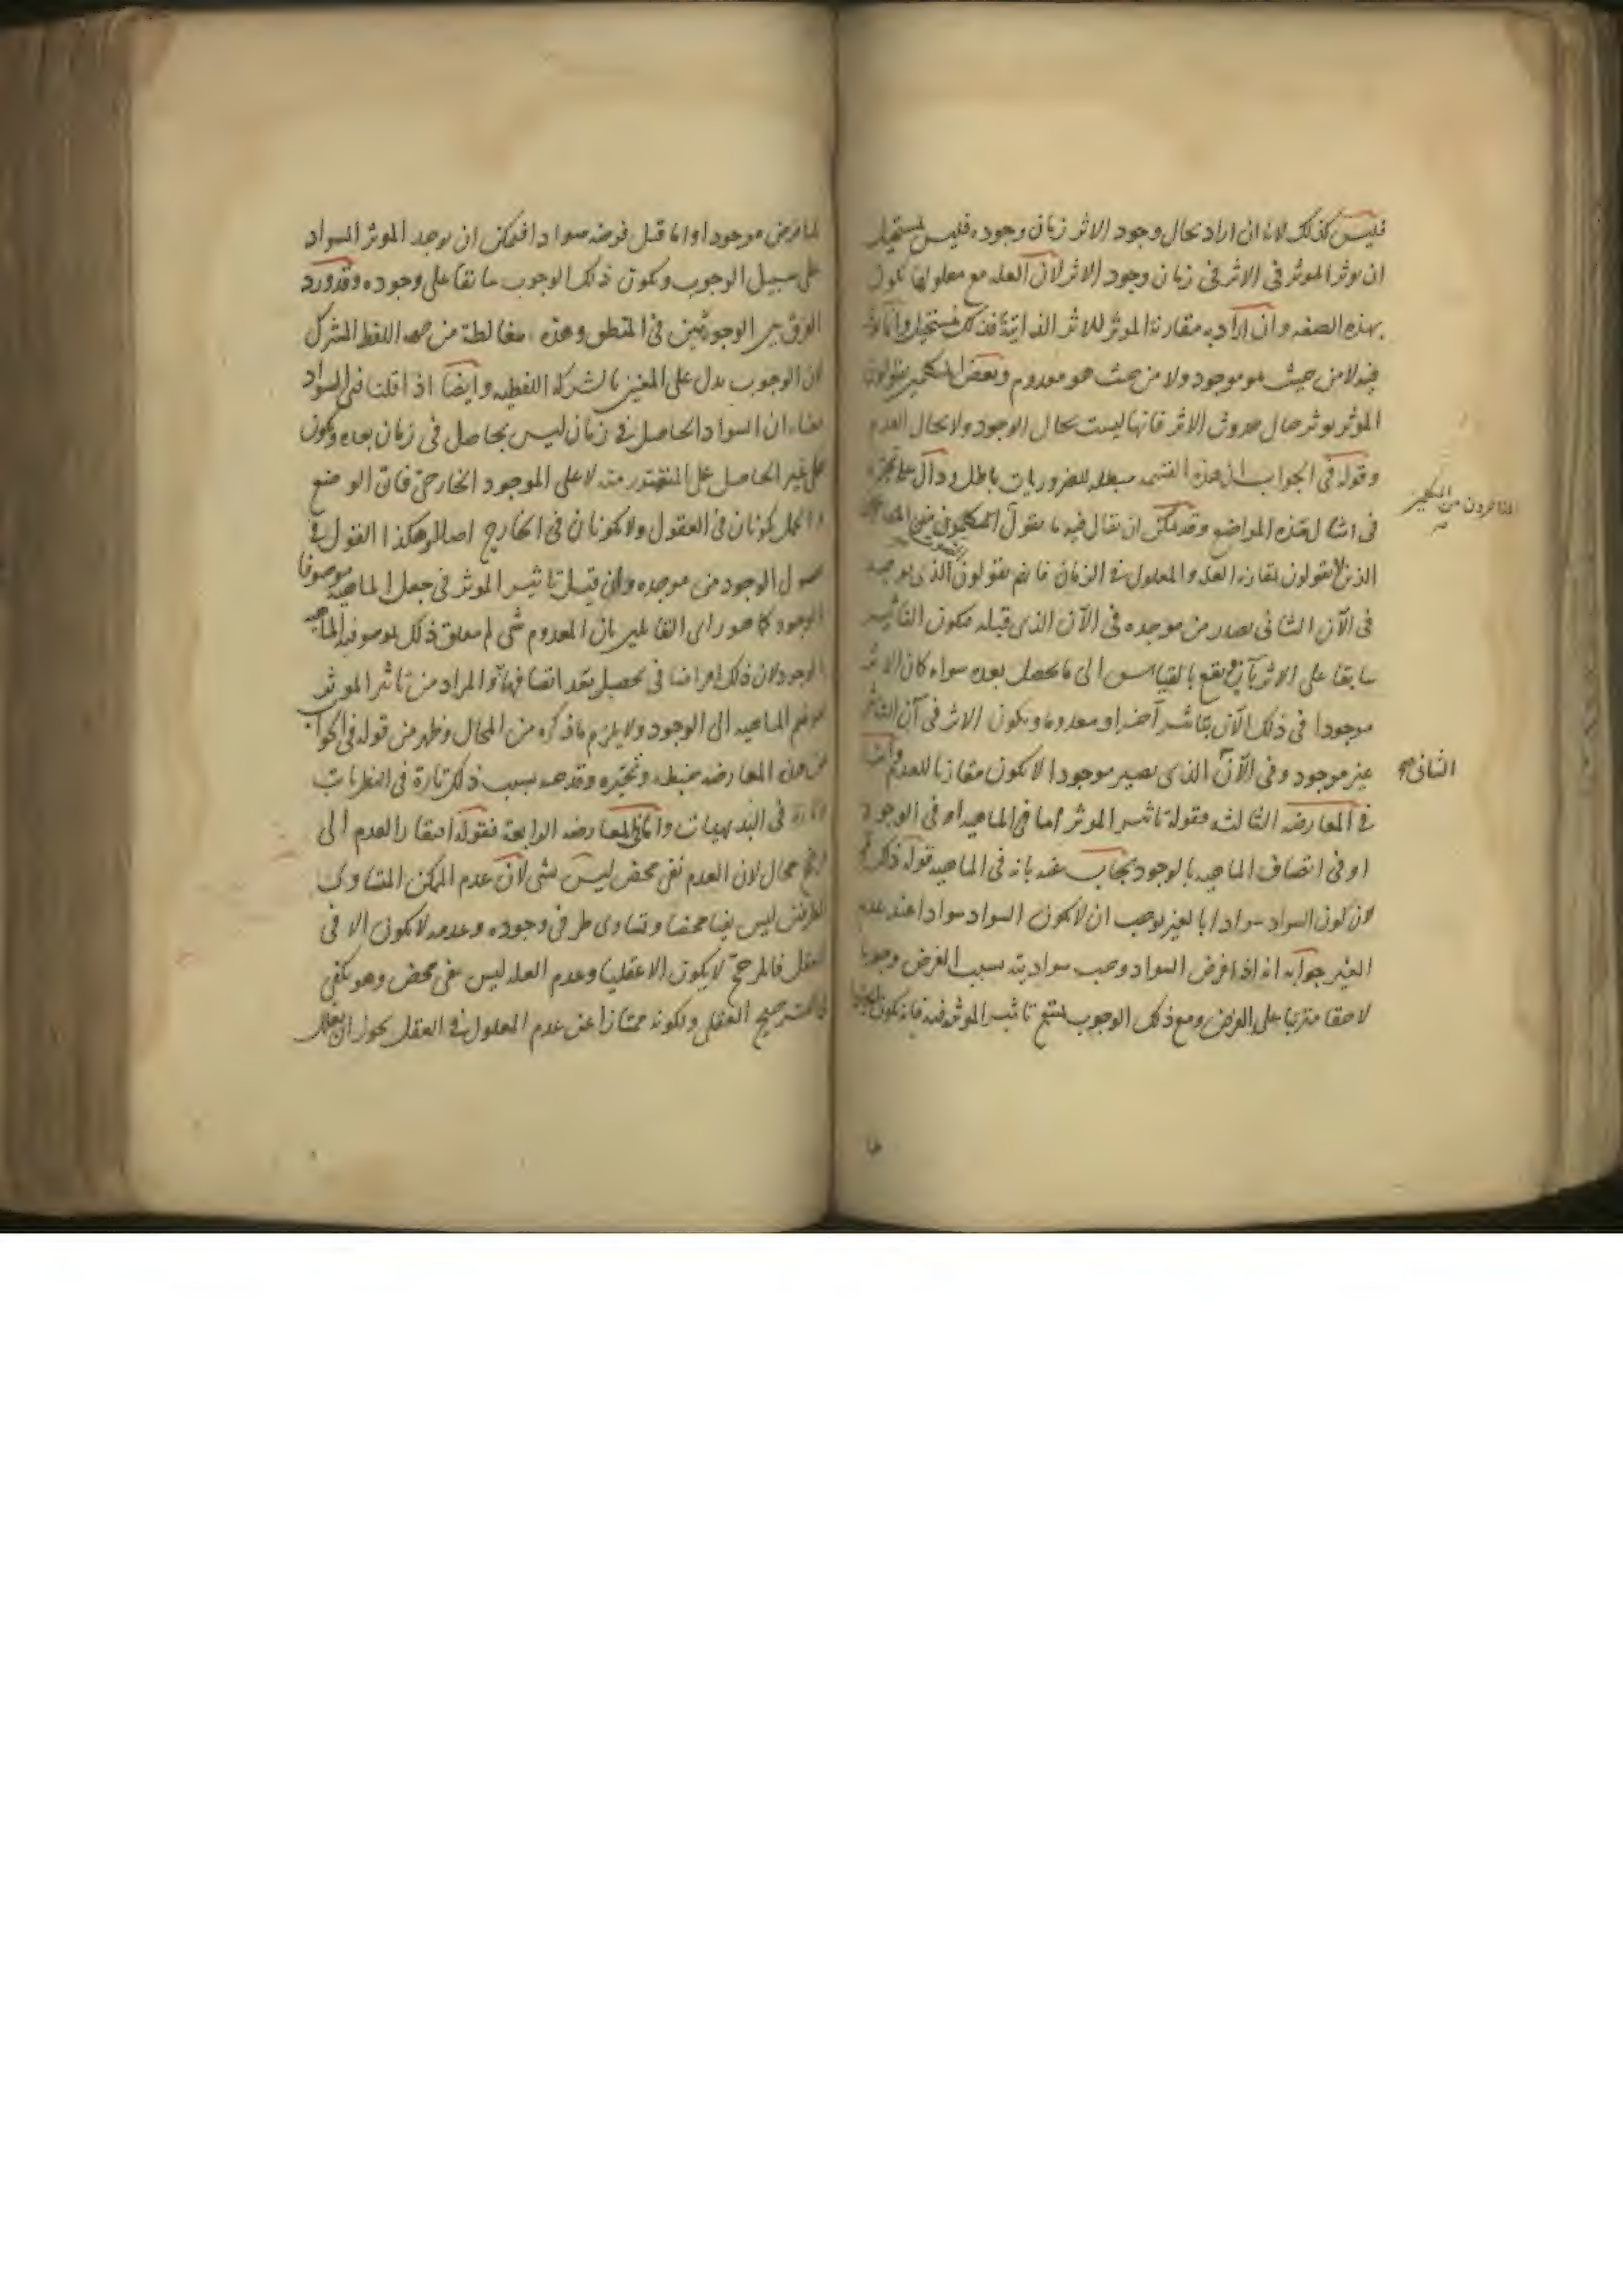 فليس كذلك لانه ان اراد بحال وجود الاثر زمان وجوده فليس بمستحيل
ان يوثر الموثر فى الاثر فى زمان وجود الاثر لان العله مع معلولها تكون
بهذه الصفه وان اراد به مقارنة الموثر للاثر الذاتية فذلك مستحيل وانما يوثر
فيه لا من حيث هو موجود ولا من حيث هو معدوم وبعض المتكلمين يقولون
الموثر يوثر حال حدوث الاثر فانها ليست بحال الوجود ولا بحال العدم
وقوله فى الجواب ان هذه القسمه مبطله للضروريات باطل ودال على تحيره
فى امثال هذه المواضع وقد يمكن ان يقال فيه ما يقول المتكلمون
الذين لا يقولون بمقارنة العله والمعلول فى الزمان فانهم يقولون الذى يوجد
فى الآن الثانى يصدر من موجده فى الآن الذى قبله فيكون التاثير
سابقا على الاثر بآن ويقع بالقياس الى ما يحصل بعده سواء كان الاثر
موجودا فى ذلك الآن بتاثير آخر او معدوما ويكون الاثر فى آن التاثير
غير موجود وفى الآن الذى يصير موجودا لا يكون مقارنا للعدم واما
فى المعارضه الثالثه فقوله تاثير الموثر اما فى الماهيه او فى الوجود
او فى اتصاف الماهيه بالوجود يجاب عنه بانه فى الماهيه قوله ذلك
لان كون السواد سوادا بالغير يوجب ان لا يكون السواد سوادا عند عدم
الغير جوابه انه اذا فرض السواد وجب سواديته بسبب الفرض وجوبا
لاحقا مترتبا على الفرض ومع ذلك الوجوب يمتنع تاثير الموثر فيه فانه يكون ايجادا
المتاخرون من المتكلمين
الثانى
لما فرض موجودا واما قبل فرضه سوادا فيمكن ان يوجد الموثر السواد
على سبيل الوجوب ويكون ذلك الوجوب سابقا على وجوده وقد ورد
الفرق بين الوجوبين فى المنطق وهذه مغالطة من جهه اللفظ المشترك
لان الوجوب يدل على المعنيين بالشركه اللفظيه وايضا اذا قلنا فنى السواد
معناه ان السواد الحاصل فى زمان ليس بحاصل فى زمان بعده ويكون
حمل غير الحاصل على المتصور منه لا على الموجود الخارجى فان الوضع
والحمل يكونان فى العقول ولا يكونان فى الخارج اصلا وهكذا القول فى
حصول الوجود من موجده وان قيل تاثير الموثر فى جعل الماهيه موصوفا
بالوجود كما هو راى القائلين بان المعدوم شى لم يتعلق ذلك بموصوفيه الماهيه
بالوجود لان ذلك امر اضافى يحصل بعد اتصافها والمراد من تاثير الموثر
هو ضم الماهيه الى الوجود ولا يلزم ما ذكره من المحال وظهر من قوله فى الجواب
عن هذه المعارضه خبطه وتحيره وقدحه بسبب ذلك تارة فى النظريات
وتارة فى البديهيات واما فى المعارضه الرابعة فقوله افتقار العدم الى
المرجح محال لان العدم نفى محض ليس بشى لان عدم الممكن المتساوى
الطرفين ليس نفيا محضا وتساوى طرفى وجوده وعدمه لا يكون الا فى
العقل فالمرجح لا يكون الا عقليا وعدم العله ليس بنفى محض وهو يكفى
فى الترجيح العقلى ولكونه ممتازا عن عدم المعلول فى العقل يجوز ان يعلل